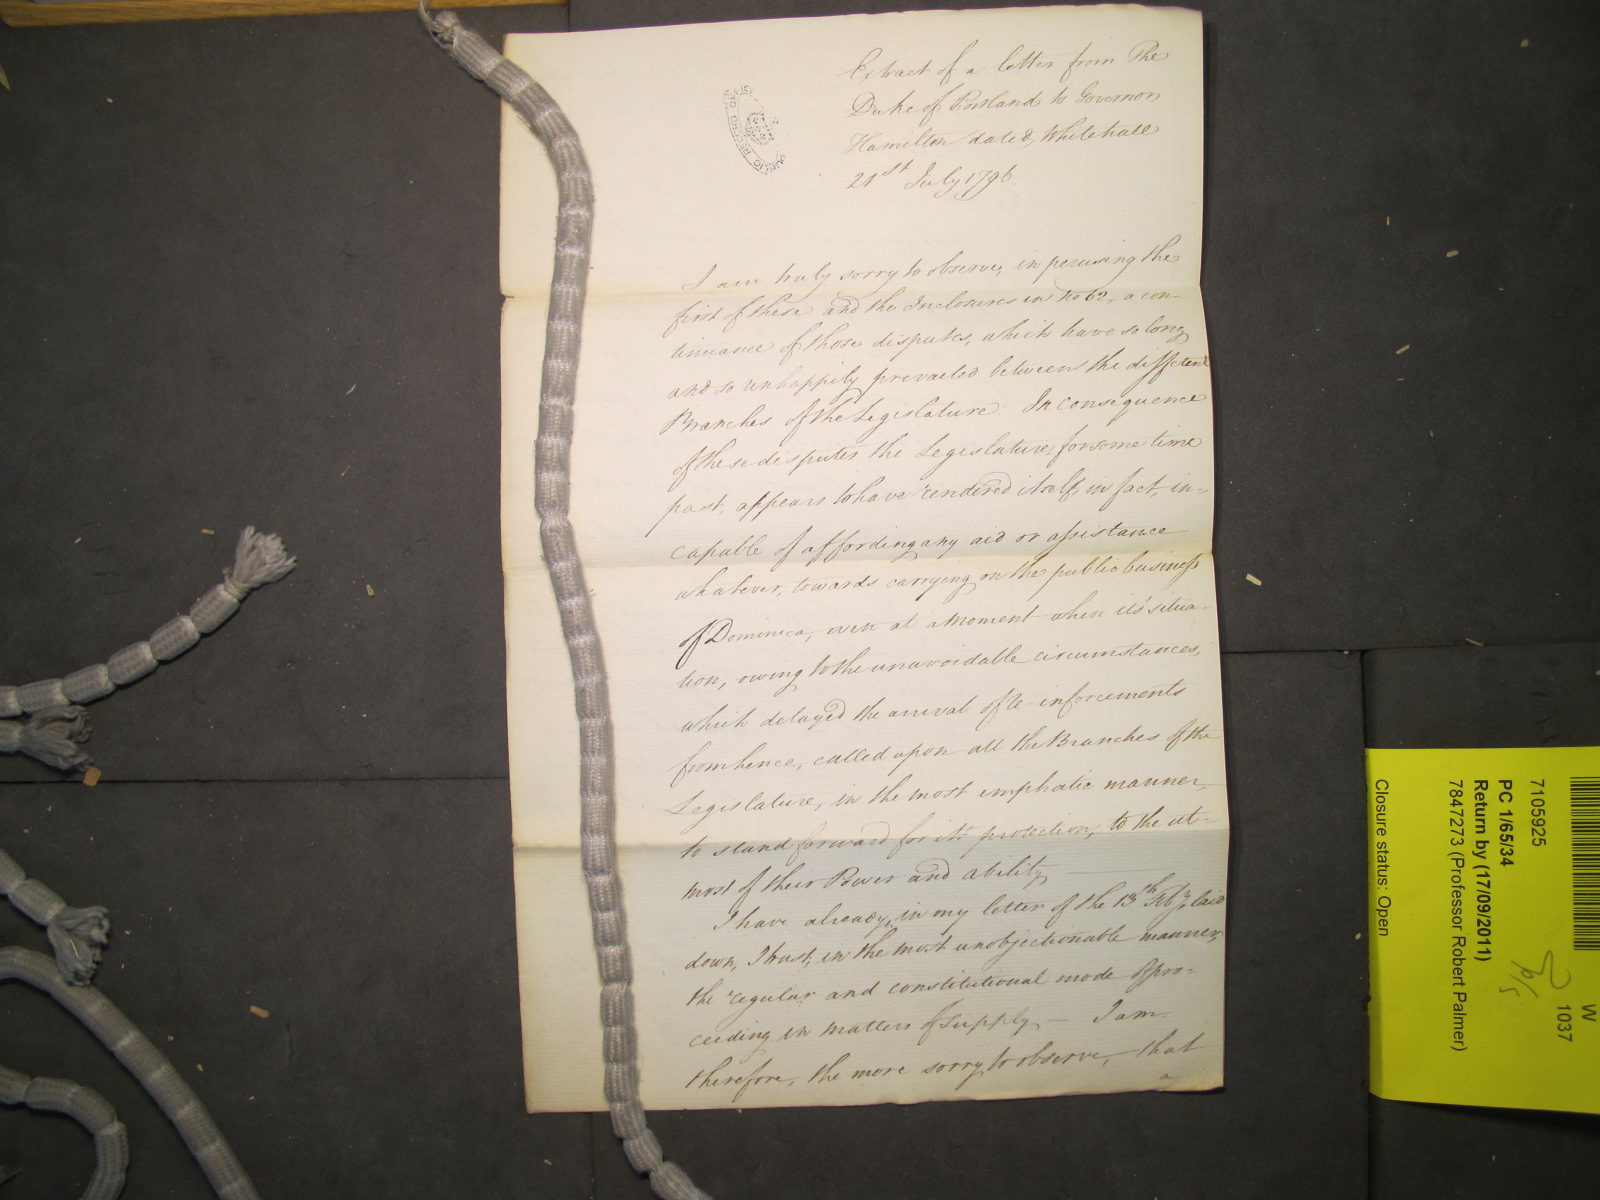 Extract of a letter from The
Duke of Portland to Governor
Hamilton dated, Whitehall
21st July 1796.
PUBLIC RECORD
I am truly sorry to observe, in perusing the
first of these and the Inclosures in No 62, a con-
tinuance of those disputes, which have so long
and so unhappily prevailed between the different
Branches of the Legislature. In consequence
of these disputes the Legislature, for some time
past, appears to have rendered itself, in fact, in-
capable of affording any aid or assistance
whatever, towards carrying on the public business
of Dominica, even at a Moment when its' situa-
tion, owing to the unavoidable circumstances,
which delayed the arrival of re-inforcements
from hence, called upon all the Branches of the
Legislature, in the most emphatic manner,
to stand forward for it's protection, to the ut-
most of their Power and ability
I have already, in my letter of the 13th Feby, laid
down, I trust, in the most unobjectionable manner,
the regular and constitutional mode of pro-
ceeding in matters of supply — I am
therefore, the more sorry to observe, that
a
7105925
PC 1/65/34
Return by (17/09/2011)
7847273 (Professor Robert Palmer)
Closure status: Open
W
1037